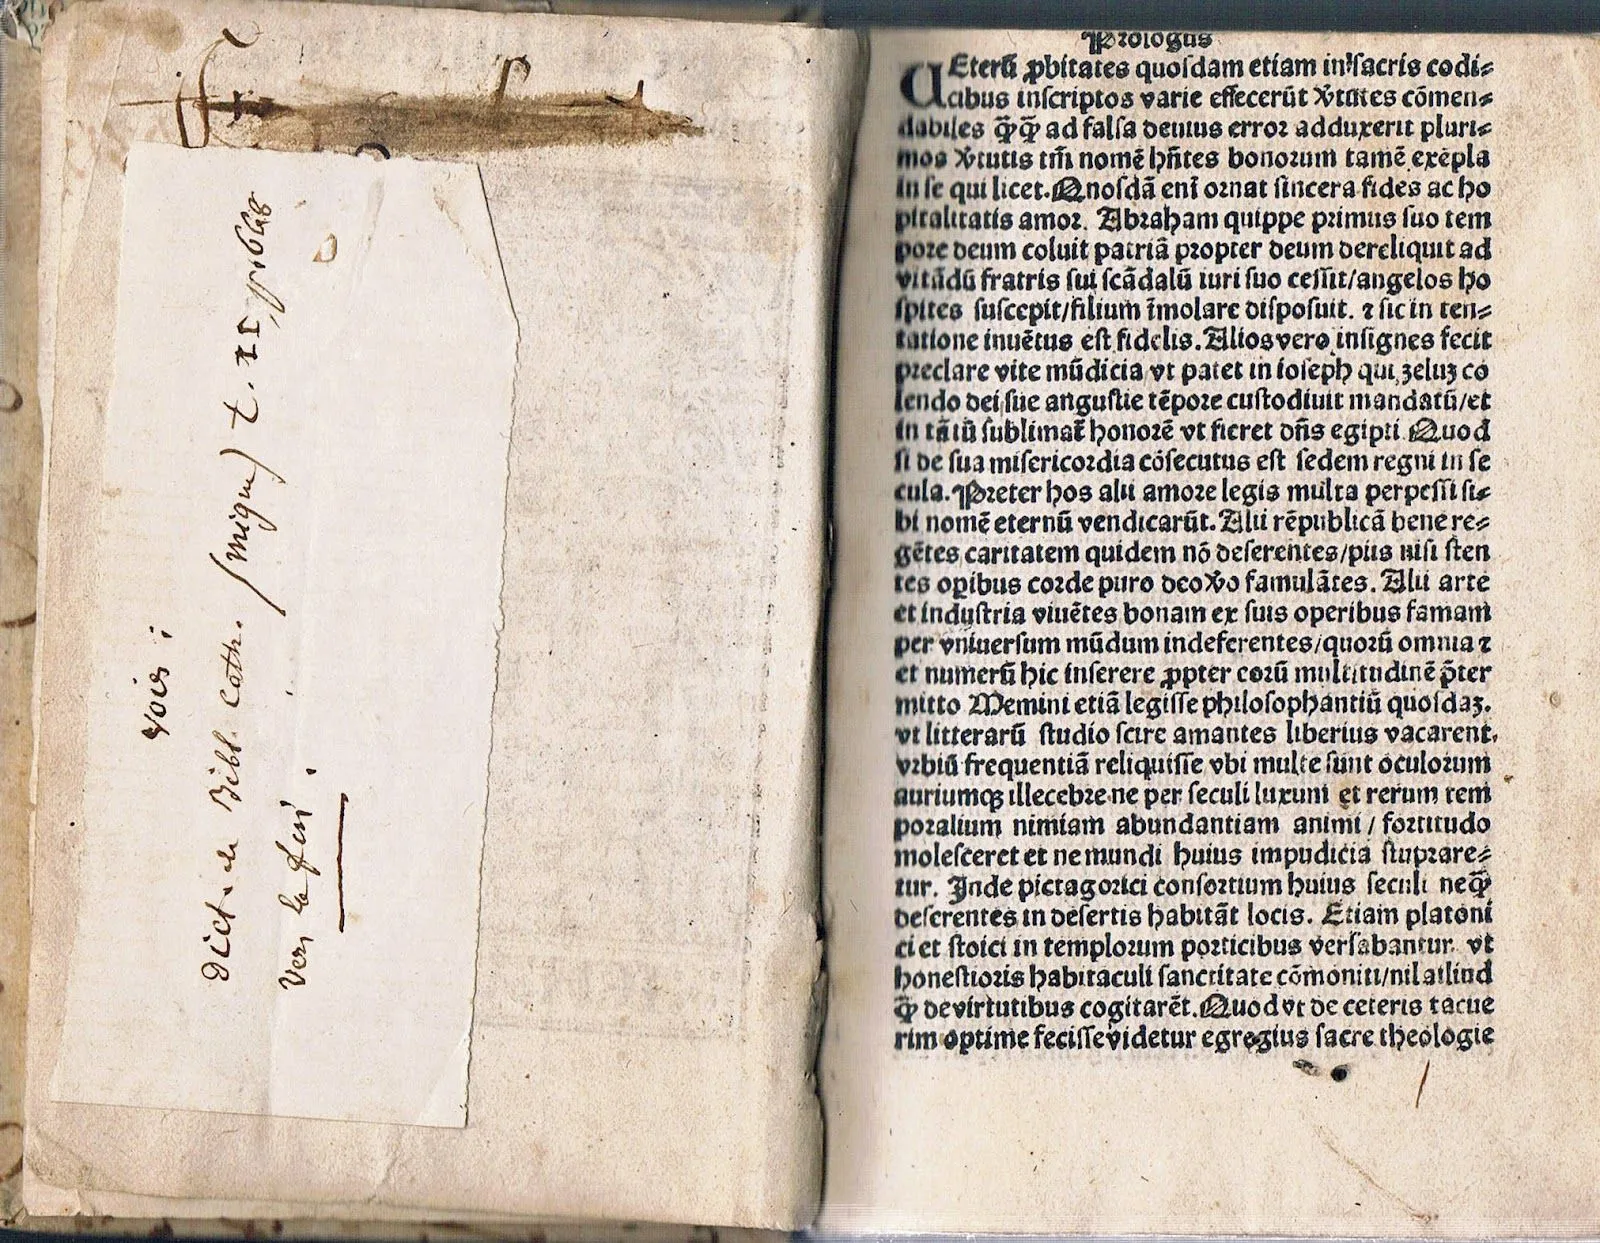 voir :
Dict. de Bibl. cath. (migne) t. II, p. 968
vers la fin.
Prologus
UEterū ꝓbitates quoſdam etiam in ſacris codi⸗
cibus inſcriptos varie effecerūt v̓tutes cōmen⸗
dabiles q̄q̄ ad falſa deuius error adduxerit pluri⸗
mos v̓tutis tm̄ nomē hn̄tes bonorum tamē exēpla
in ſe qui licet. Quoſdā enī ornat ſincera fides ac ho
pitalitatis amor. Abraham quippe primus ſuo tem
pore deum coluit patriā propter deum dereliquit ad
vitādū fratris ſui ſcādalū iuri ſuo ceſſit/angelos ho
ſpites ſuſcepit/filium īmolare diſpoſuit. ⁊ ſic in ten⸗
tatione inuētus eſt fidelis. Alios vero inſignes fecit
preclare vite mūdicia vt patet in ioſeph qui zeluʒ co
lendo dei ſue anguſtie tēpore cuſtodiuit mandatū/et
in tātū ſublimat̄ honorē vt fieret dn̄s egipti Quod
ſi de ſua miſericordia cōſecutus eſt ſedem regni in ſe
cula. Preter hos alii amore legis multa perpeſſi ſi⸗
bi nomē eternū vendicarūt. Alii rēpublicā bene re⸗
gētes caritatem quidem nō deſerentes/piis niſi ſten
tes oꝑibus corde puro deo v̓o famulātes. Alii arte
et induſtria viuētes bonam ex ſuis operibus famam
per vniuerſum mūdum indeferentes/quorū omnia ⁊
et numerū hic inſerere ꝓpter eorū multitudinē p̄ter
mitto Memini etiā legiſſe philoſophantiū quoſdaʒ.
vt litterarū ſtudio ſcire amantes liberius vacarent.
vrbiū frequentiā reliquiſſe vbi multe ſunt oculorum
auriumqʒ illecebre ne per ſeculi luxum et rerum tem
poralium nimiam abundantiam animi / fortitudo
moleſceret et ne mundi huius impudicia ſtuprare⸗
tur. Inde pictagorici conſortium huius ſeculi neq̄
deſerentes in deſertis habitāt locis. Etiam platoni
ci et ſtoici in templorum porticibus verſabantur. vt
honeſtioris habitaculi ſanctitate cōmoniti/nil aliud
q̄ de virtutibus cogitarēt. Quod vt de ceteris tacue
rim optime feciſſe videtur egregius ſacre theologie